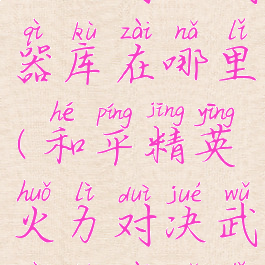 qì kù zài nǎ lǐ
器库在哪里
hé píng jīng yīng
(和平精英
huǒ lì duì jué wǔ
火力对决武